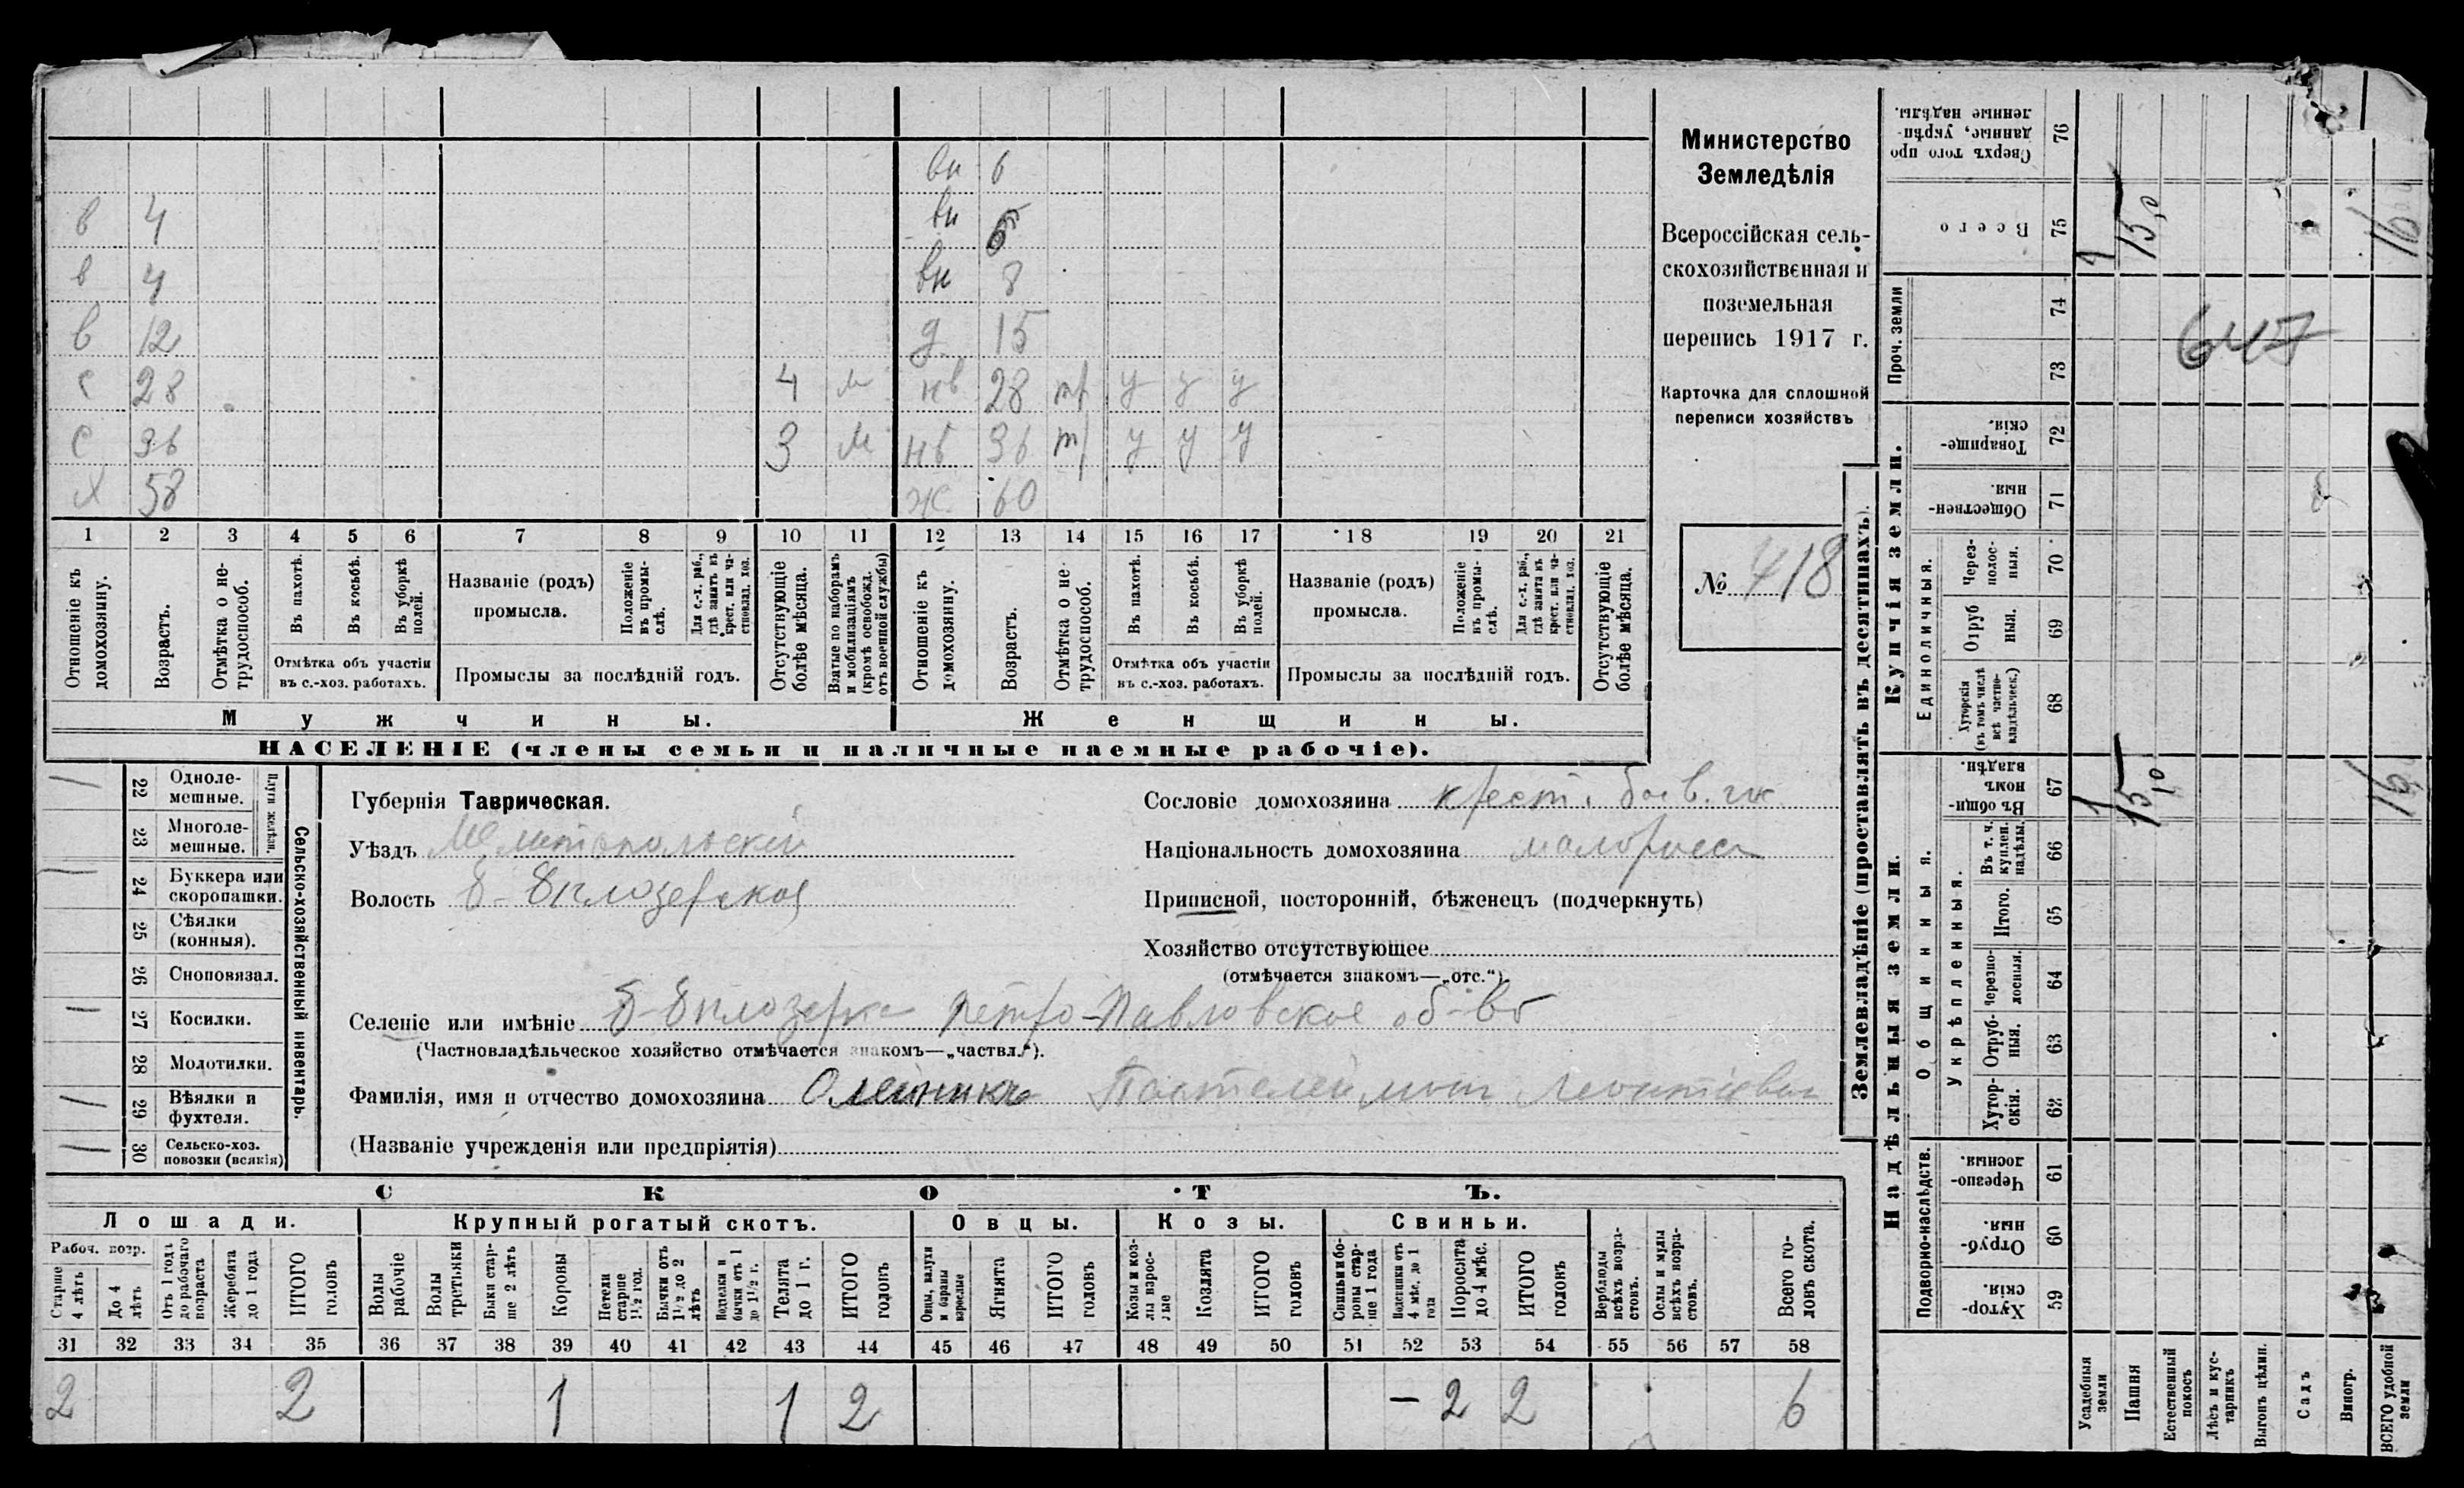 вн 6
в 4 вн 6
в 4 вн 8
в 12 д 15
с 28 4 м нв 28 тр у у у
с 36 3 м нв 36 тр у у у
Х 58 ж 60
1 2 3 4 5 6 7 8 9 10 11 12 13 14 15 16 17 18 19 20 21
Отношеніе къ домохозяину.
Возрастъ.
Отмѣтка о нетрудоспособ.
Въ пахотѣ.
Въ косьбѣ.
Въ уборкѣ полей.
Отмѣтка объ участіи
въ с.-хоз. работахъ.
Названіе (родъ)
промысла.
Положеніе въ промыслѣ.
Для с.-х. раб., гдѣ занятъ въ крест. или частновлад. хоз.
Промыслы за послѣдній годъ.
Отсутствующіе болѣе мѣсяца.
Взятые по наборамъ и мобилизаціямъ (кромѣ освобожд. отъ военной службы)
Отношеніе къ домохозяину.
Возрастъ.
Отмѣтка о нетрудоспособ.
Въ пахотѣ.
Въ косьбѣ.
Въ уборкѣ полей.
Отмѣтка объ участіи
въ с.-хоз. работахъ.
Названіе (родъ)
промысла.
Положеніе въ промыслѣ.
Для с.-х. раб., гдѣ занята въ крест. или частновлад. хоз.
Промыслы за послѣдній годъ.
Отсутствующіе болѣе мѣсяца.
Мужчины. Женщины.
НАСЕЛЕНІЕ (члены семьи и наличные наемные рабочіе).
Министерство
Земледѣлія
Всероссійская сель-
скохозяйственная и
поземельная
перепись 1917 г.
Карточка для сплошной
переписи хозяйствъ
№ 418
Сельско-хозяйственный инвентарь.
Плуги желѣзн.
22 Одноле-
мешные.
23 Многоле-
мешные.
24 Буккера или
скоропашки.
25 Сѣялки
(конныя).
26 Сноповязал.
27 Косилки.
28 Молотилки.
29 Вѣялки и
фухтеля.
30 Сельско-хоз.
повозки (всякія)
Губернія Таврическая.
Уѣздъ Мелитопольскій
Волость Б-Бѣлозерская
Сословіе домохозяина крест.
Національность домохозяина малоросс
Приписной, посторонній, бѣженецъ (подчеркнуть)
Хозяйство отсутствующее
(отмѣчается знакомъ—„отс.“).
Селеніе или имѣніе Б-Бѣлозерка Петро-Павловское об-во
(Частновладѣльческое хозяйство отмѣчается знакомъ—„частвл.“).
Фамилія, имя и отчество домохозяина Олейникъ Пантелеймон Леонтіевич
(Названіе учрежденія или предпріятія)
СКОТЪ.
Лошади. Крупный рогатый скотъ. Овцы. Козы. Свиньи.
Рабоч. возр.
Старше 4 лѣтъ
До 4 лѣтъ
Отъ 1 года до рабочаго возраста
Жеребята до 1 года
ИТОГО головъ
Волы рабочіе
Волы третьяки
Быки старше 2 лѣтъ
Коровы
Нетели старше 1½ год.
Бычки отъ 1½ до 2 лѣтъ
Подтелки и бычки отъ 1 до 1½ г.
Телята до 1 г.
ИТОГО головъ
Овцы, валухи и бараны взрослые
Ягнята
ИТОГО головъ
Козы и козлы взрослые
Козлята
ИТОГО головъ
Свиньи и боровы старше 1 года
Подсвинки отъ 4 мѣс. до 1 года
Поросята до 4 мѣс.
ИТОГО головъ
Верблюды всѣхъ возрастовъ.
Ослы и мулы всѣхъ возрастовъ.
Всего головъ скота.
31 32 33 34 35 36 37 38 39 40 41 42 43 44 45 46 47 48 49 50 51 52 53 54 55 56 57 58
2 2 1 1 2 – 2 2 6
Землевладѣніе (проставлять въ десятинахъ).
Купчія земли.
Надѣльныя земли.
Сверхъ того проданные, укрѣпленные надѣлы. 76
Всего 75
Проч. земли 74
73
Товарищескія. 72
Общественныя. 71
Единоличныя.
Черезполосныя. 70
Отрубныя. 69
Хуторскія (въ томъ числѣ всѣ частновладѣльческ.) 68
Общинныя.
Въ общинномъ владѣн. 67
Укрѣпленныя.
Въ т. ч. куплен. надѣлы. 66
Итого. 65
Черезполосныя. 64
Отрубныя. 63
Хуторскія. 62
Подворно-наслѣдств.
Черезполосныя. 61
Отрубныя. 60
Хуторскія. 59
Усадебныя земли
Пашня
Естественный покосъ
Лѣсъ и кустарникъ
Выгонъ цѣлин.
Садъ
Виногр.
ВСЕГО удобной земли
1 15,0 16
1 15,0 16
647